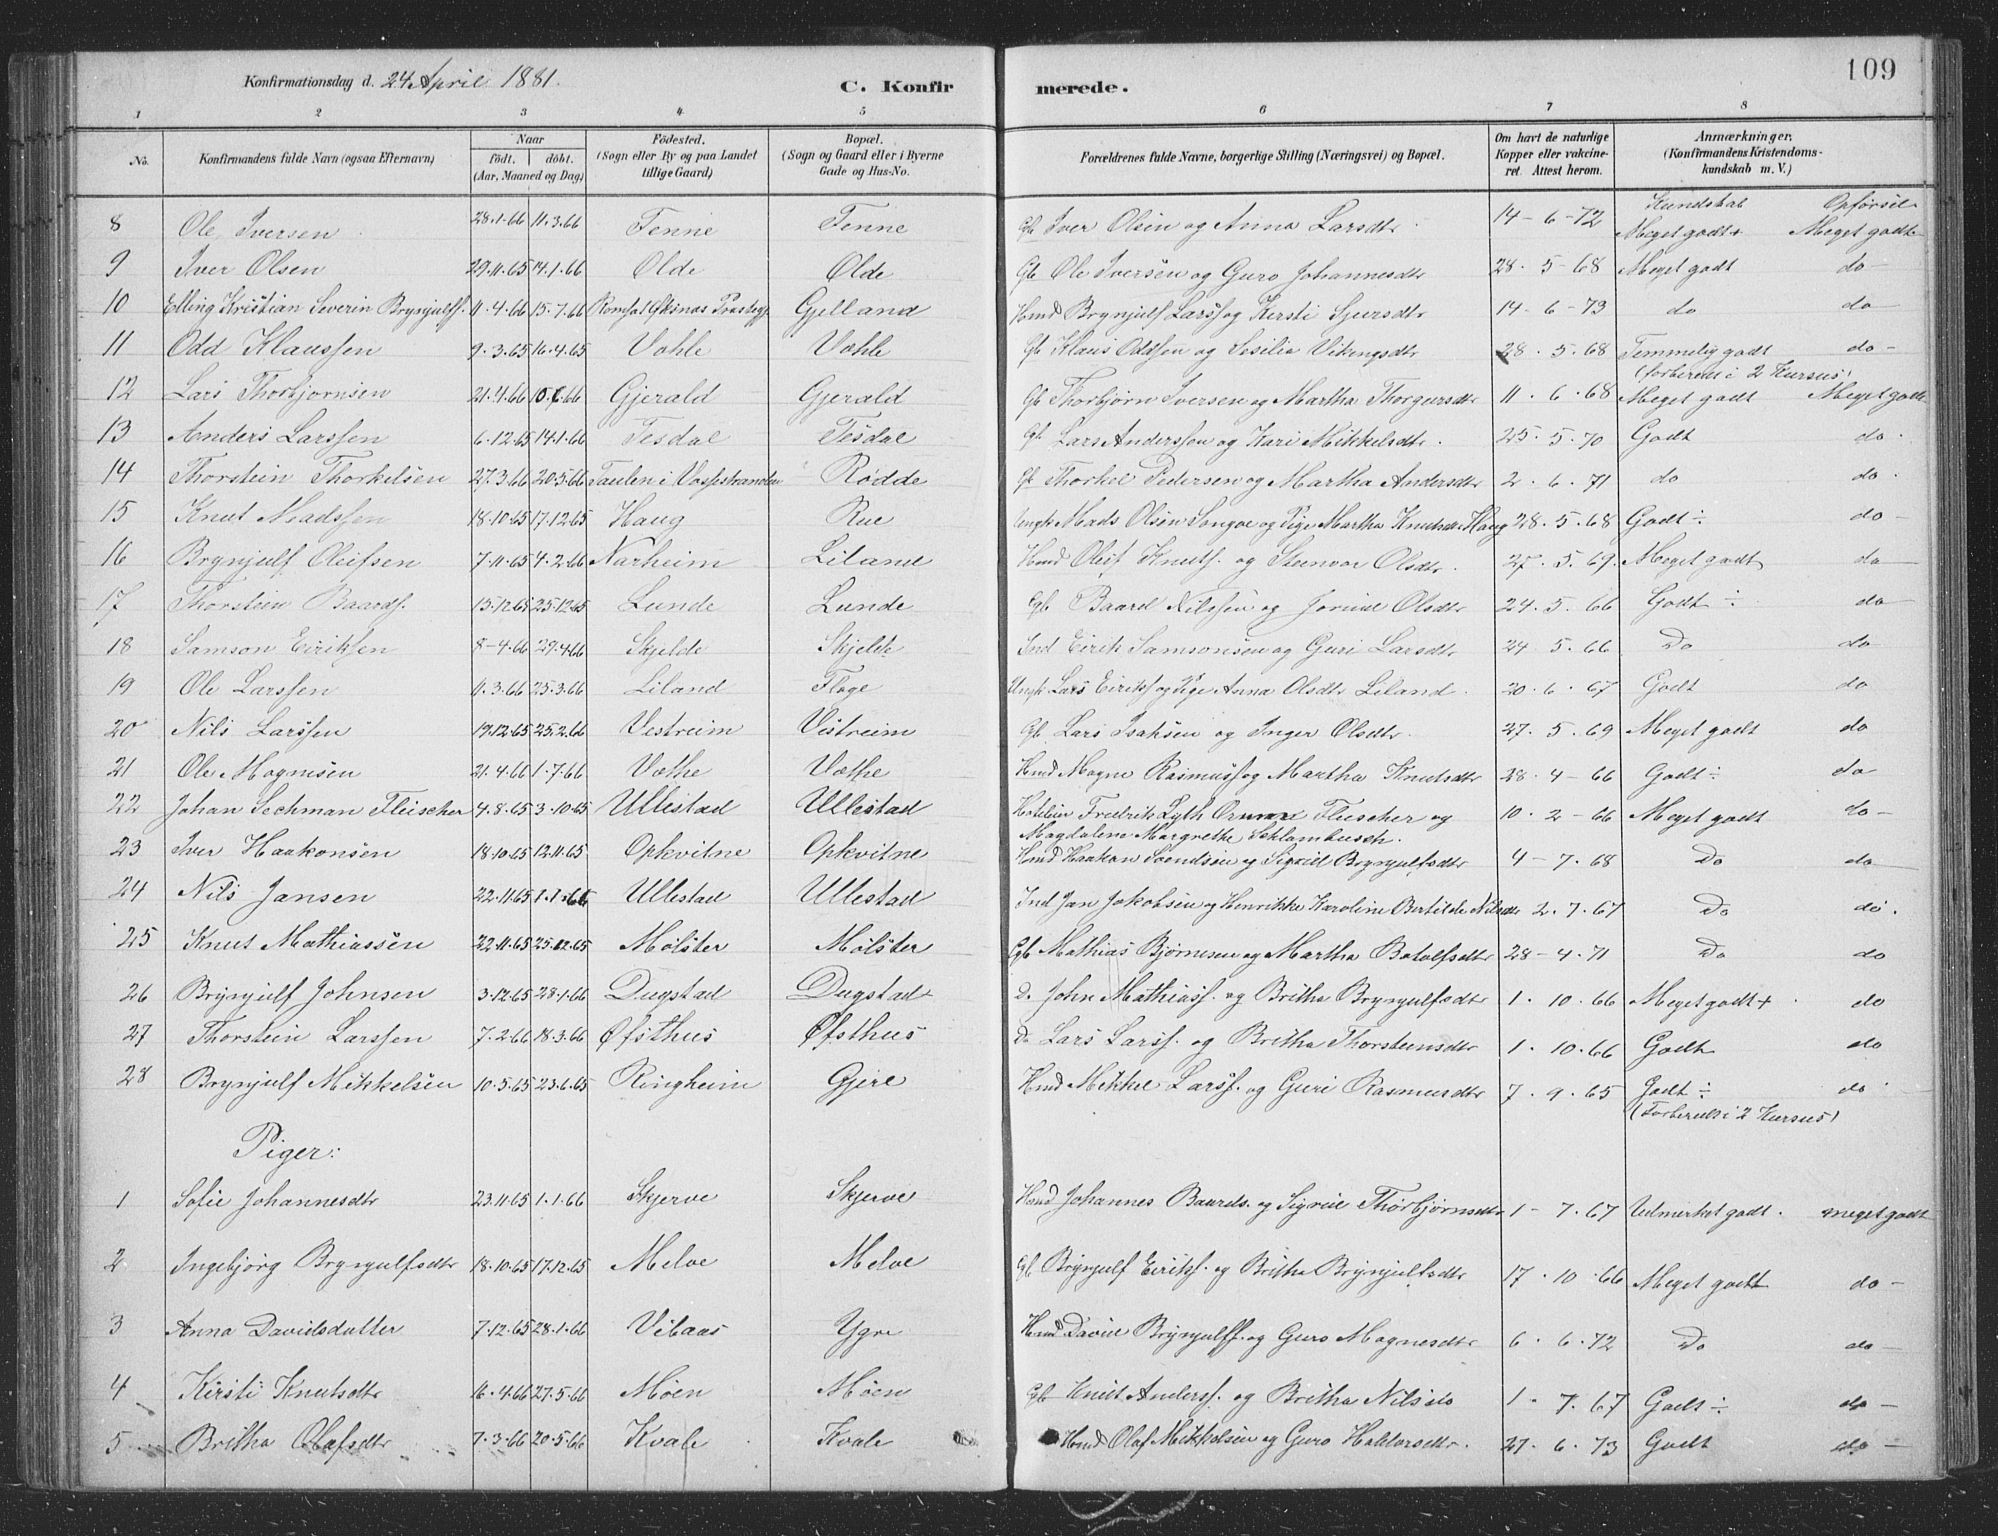 Konfirmationsdag d. 24 April 1881.
C. Konfir
merede.
109
1 2 3 4 5 6 7 8
No. Konfirmandens fulde Navn (ogsaa Efternavn) Naar födt. döbt. (Aar, Maaned og Dag) Födested. (Sogn eller By og paa Landet tillige Gaard) Bopæl. (Sogn og Gaard eller i Byerne Gade og Hus-No. Forældrenes fulde Navne, borgerlige Stilling (Næringsvei) og Bopæl. Om havt de naturlige Kopper eller vakcineret. Attest herom. Anmærkninger. (Konfirmandens Kristendomskundskab m. V.)
Kundskab Opförsel
8 Ole Iversen 28.1.66 11.3.66 Tenne Tenne Gb Iver Olsen og Anna Larsdtr 14-6-72 Meget godt+ Meget godt
9 Iver Olsen 29.11.65 14.1.66 Olde Olde Gb Ole Iversen og Guro Johannesdtr 28.5-68 Meget godt do
10 Elling Kristian Severin Brynjulfs. 11.4.66 15.7.66 Gjelland Hmd Brynjulf Larss og Kersti Sjursdtr 14-6-73 do do
11 Odd Klaussen 9.3.65 16.4.65 Vohle Vohle Gb Klaus Oddsen og Sesilia Vikingsdtr 28.5.68 Temmelig godt do
(forberedt i 2 Kursus)
12 Lars Thorbjørnsen 21.4.66 Gjerald Gjerald Gb Thorbjörn Iversen og Martha Thorgersdtr 11.6.68 Meget godt Meget godt
13 Anders Larssen 6.12.65 14.1.66 Tesdal Tesdal Gb Lars Anderssen og Kari Mikkelsdtr. 25.5.70 Godt do
14 Thorstein Thorkelsen 27.3.66 20.5.66 Taulen i Vossestranden Rødde Gb Thorkel Pedersen og Martha Andersdtr 2.6.71 do do
15 Knut Madssen 18.10.65 17.12.65 Haug Rue Ungk Mads Olsen og Pige Martha Knutsdtr Haug 28.5.68 Godt ÷ do
16 Brynjulf Oleifsen 7.11.65 4.2.66 Narheim Liland Hmd Oleif Knuts. og Steenvor Olsdtr. 27.5.69. Meget godt do
17 Thorstein Baards. 15.12.65 25.12.65 Lunde Lunde Gb Baard Nilssen og Jorine Olsdtr 24.5.66 Godt ÷ do
18 Samson Eiriksen 8-4.66 29.4.66 Skjelde Skjelde Ind Eirik Samsonsen og Guri Larsdtr 24.5.66 Do do
19 Ole Larssen 11.3.66 25.3.66 Liland Flage Ungk Lars Eiriks og Pige Anna Olsdtr Liland. 20.6.67 Godt do
20 Nils Larssen 19.12.65 25.2.66 Vestreim Vestreim Gb Lars Isaksen og Inger Olsdtr. 27.5.69 Meget godt do
21 Ole Magnesen 21.4.66 1.7.66 Væthe Væthe Hmd Magne Rasmuss og Martha Knutsdtr 28.4-66 Godt ÷ do
22 Johan Sechman Fleischer 4.8.65 3.10.65 Ullestad Ullestad Fredrik Lyth Fleischer og Magdalene Margrethe 10-2-66 Meget godt do
23 Iver Haakonsen 18.10.65 12.11.65 Opkvitne Opkvitne Hmd Haakon Svendsen og Sigrid Brynjulfsdtr 4-7.68 Do do
24 Nils Jansen 22.11.65 1.1.66 Ullestad Ullestad Ind Jan Jakobsen og Henrikke Karoline Bertilde Nilsdtr 2.7.67 Do do.
25 Knut Mathiassen 22.11.65 25.12.65 Mølster Mølster Gb Mathias Bjørnesen og Martha Botolfsdtr 28-4.71 Do do
26 Brynjulf Johnsen 3.12.65 28.1.66 Dugstad Dugstad Do John Mathiass. og Britha Brynjulfsdtr 1.10.66 Meget godt+ do
27 Thorstein Larssen 7.2.66 18.3.66 Øfsthus Øfsthus Do Lars Larss. og Britha Thorsteinsdtr 1.10.66 Godt do
28 Brynjulf Mikkelsen 10.5.65 23.6.65 Ringheim Gjere Hmd Mikkel Larss. og Guri Rasmusdtr 7.9.65 Godt ÷ do
(Forberedt i 2 Kursus)
Piger:
1 Sofie Johannesdtr 23.11.65 1.1.66 Skjerve Skjerve Hmd Johannes Baards. og Sigrid Thorbjørnsdtr 1-7.67 Udmerket godt. meget godt
2 Ingebjörg Brynjulfsdtr 18.10.65 17.12.65 Melve Melve Gb Brynjulf Eiriks. og Britha Brynjulfsdtr 17.10.66 Meget godt do
3 Anna Davidsdatter 7.12.65 28.1.66 Vibaas Ygre Hmd David Brynjulfs. og Guro Magnesdtr 6.6.72 Do do
4 Kirsti Knutsdtr 16.4.66 27.5.66 Möen Möen Gb Knut Anderss. og Britha Nilsdo 1.7.67 Godt ÷ do
5 Britha Olafsdtr 7.3.66 20.5.66 Kvale Kvale Hmd Olaf Mikkelsen og Guro Haldorsdtr. 27.6.73 Godt do